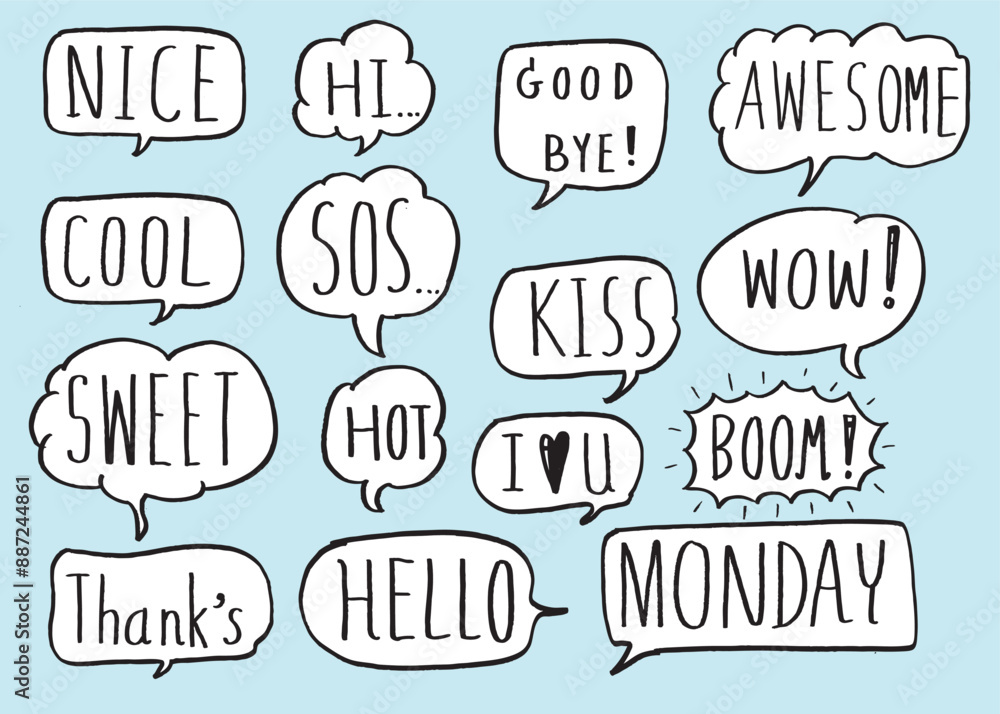 NICE
HI...
GOOD
BYE!
AWESOME
COOL
SOS...
KISS
WOW!
SWEET
HOT
I♥U
BOOM!
Thank's
HELLO
MONDAY
Adobe Stock | #887244861